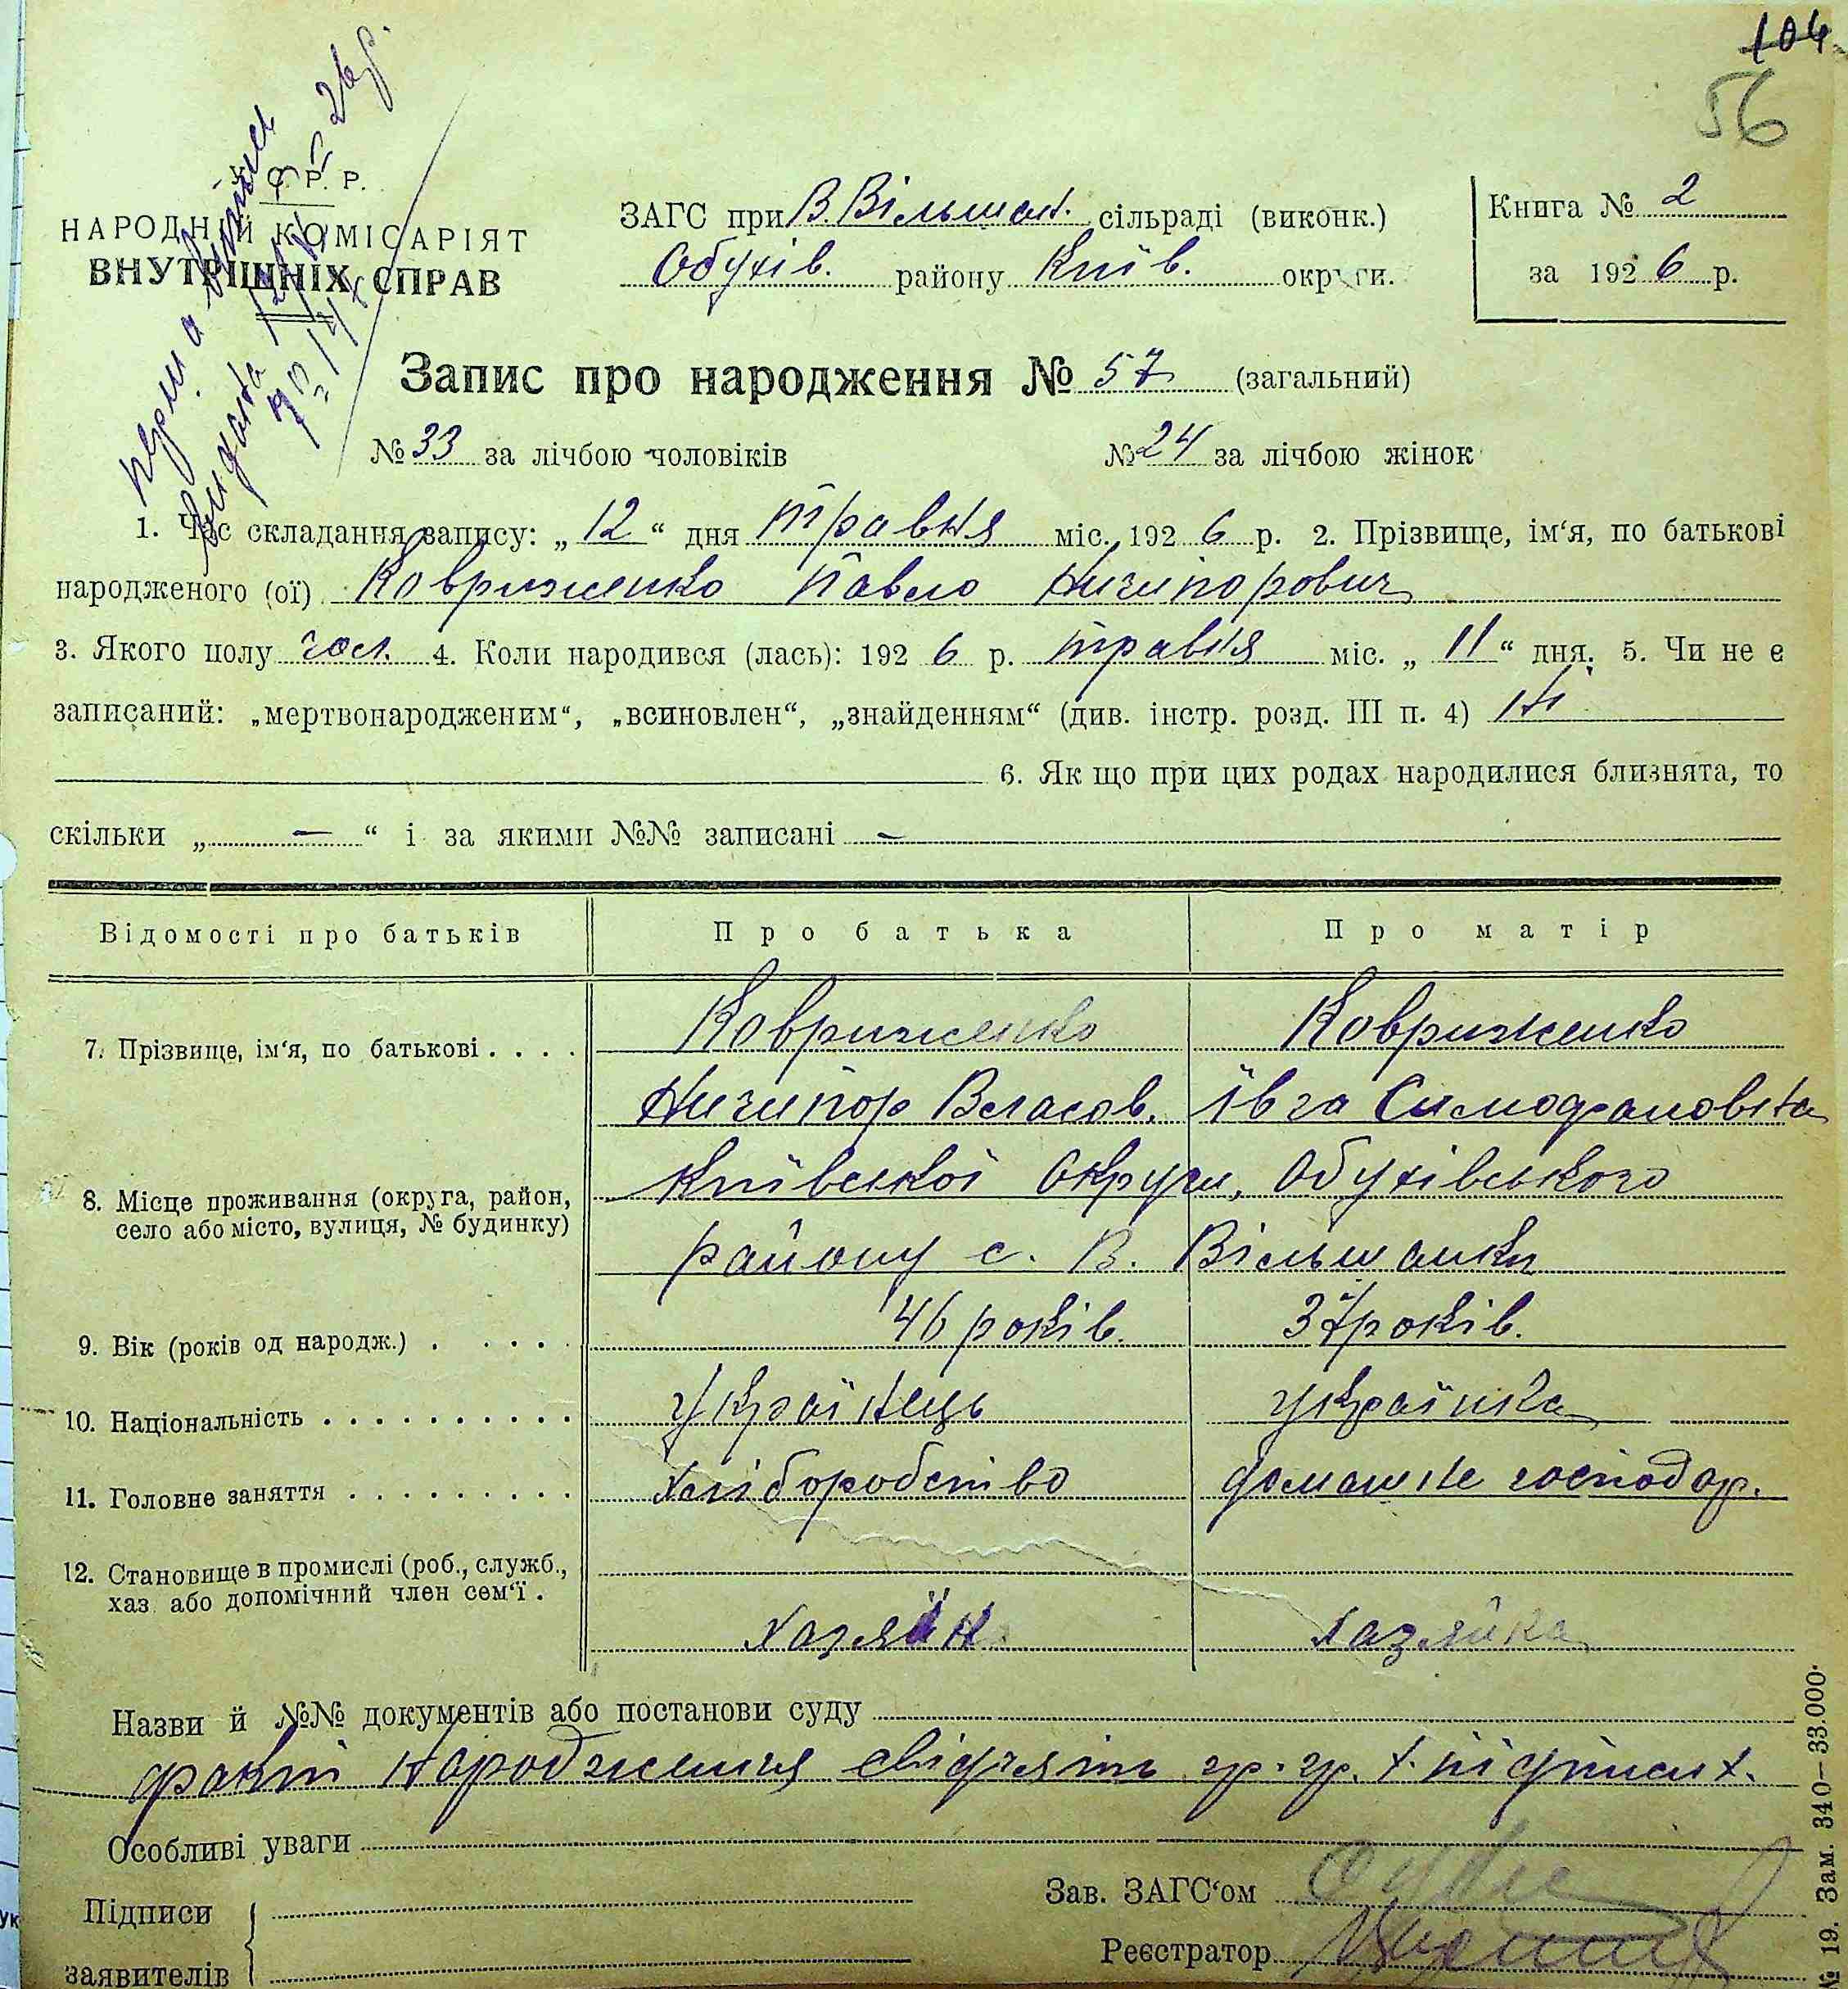 104
56
У. С. Р. Р.
НАРОДНІЙ КОМІСАРІЯТ
ВНУТРІШНІХ СПРАВ
перша виписка
видана 12/V
26 р.
ЗАГС при В. Вільшан. сільраді (виконк.)
Обухів. району Київ. округи.
Книга № 2
за 1926 р.
Запис про народження № 57 (загальний)
№ 33 за лічбою чоловіків № 24 за лічбою жінок
1. Час складання запису: „12“ дня травня міс. 1926 р. 2. Прізвище, ім‘я, по батькові
народженого (ої) Ковриженко Павло Ничипорович
3. Якого полу чол. 4. Коли народився (лась): 1926 р. травня міс. „11“ дня. 5. Чи не є
записаний: „мертвонародженим“, „всиновлен“, „знайденням“ (див. інстр. розд. III п. 4) ні
6. Як що при цих родах народилися близнята, то
скільки „ — “ і за якими №№ записані —
Відомості про батьків Про батька Про матір
7. Прізвище, ім‘я, по батькові . . . . Ковриженко Ковриженко
Ничипор Власов. Ївга Симофановна
8. Місце проживання (округа, район, село або місто, вулиця, № будинку) Київської Округи, Обухівського
району с. В. Вільшанки
9. Вік (років од народж.) . . . . . 46 років. 37 років.
10. Національність . . . . . . . . . . . Українець українка
11. Головне заняття . . . . . . . . . . хліборобство домашнє господар.
12. Становище в промислі (роб., служб.,
хаз. або допомічний член сем‘ї . хазяїн хазяйка
Назви й №№ документів або постанови суду
факт народження свідчять гр. гр.
Особливі уваги
Підписи
заявителів
Зав. ЗАГС‘ом
Реєстратор
№ 19. Зам. 340—33.000.